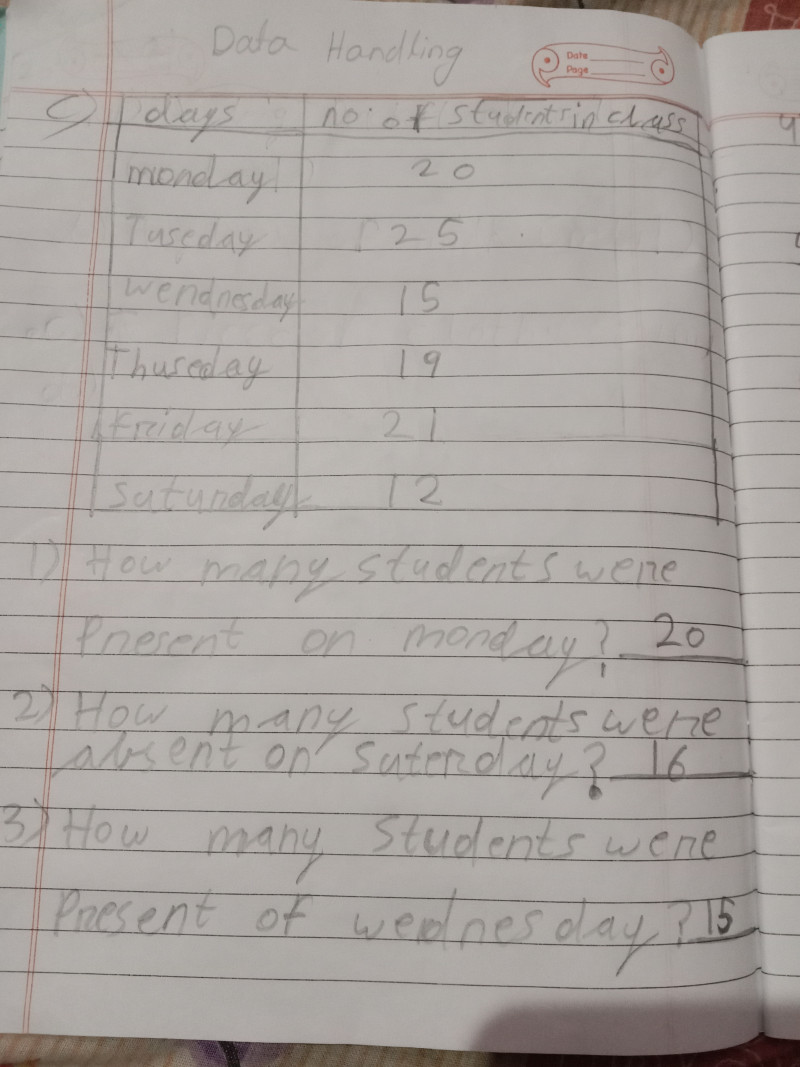 Data Handling
Date
Page
days no. of students in class
monday 20
Tuseday 25
wendnesday 15
Thuseday 19
Friday 21
Saturday 12
1) How many students were
Present on monday? 20
2) How many students were
absent on Saterday? 16
3) How many Students were
Present of wednesday? 15